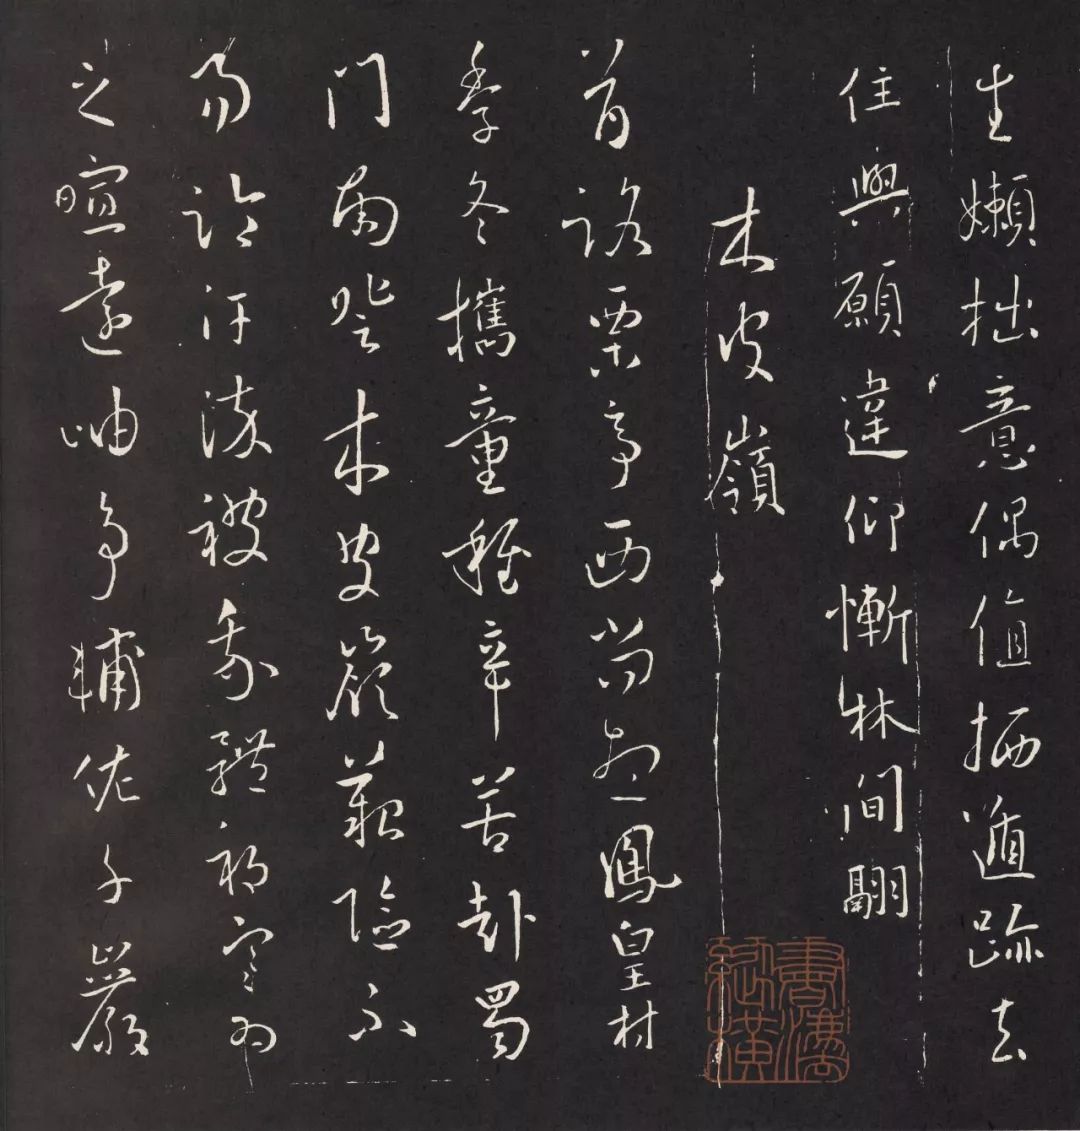 生嬾拙意偶值栖遁跡去
住與願違仰慙林間翮
木皮嶺
首路栗亭西尚想鳳皇村
季冬攜童稚辛苦赴蜀
門南登木皮嶺艱險不
易論汗流被我體祁寒為
之暄遠岫爭輔佐千巖